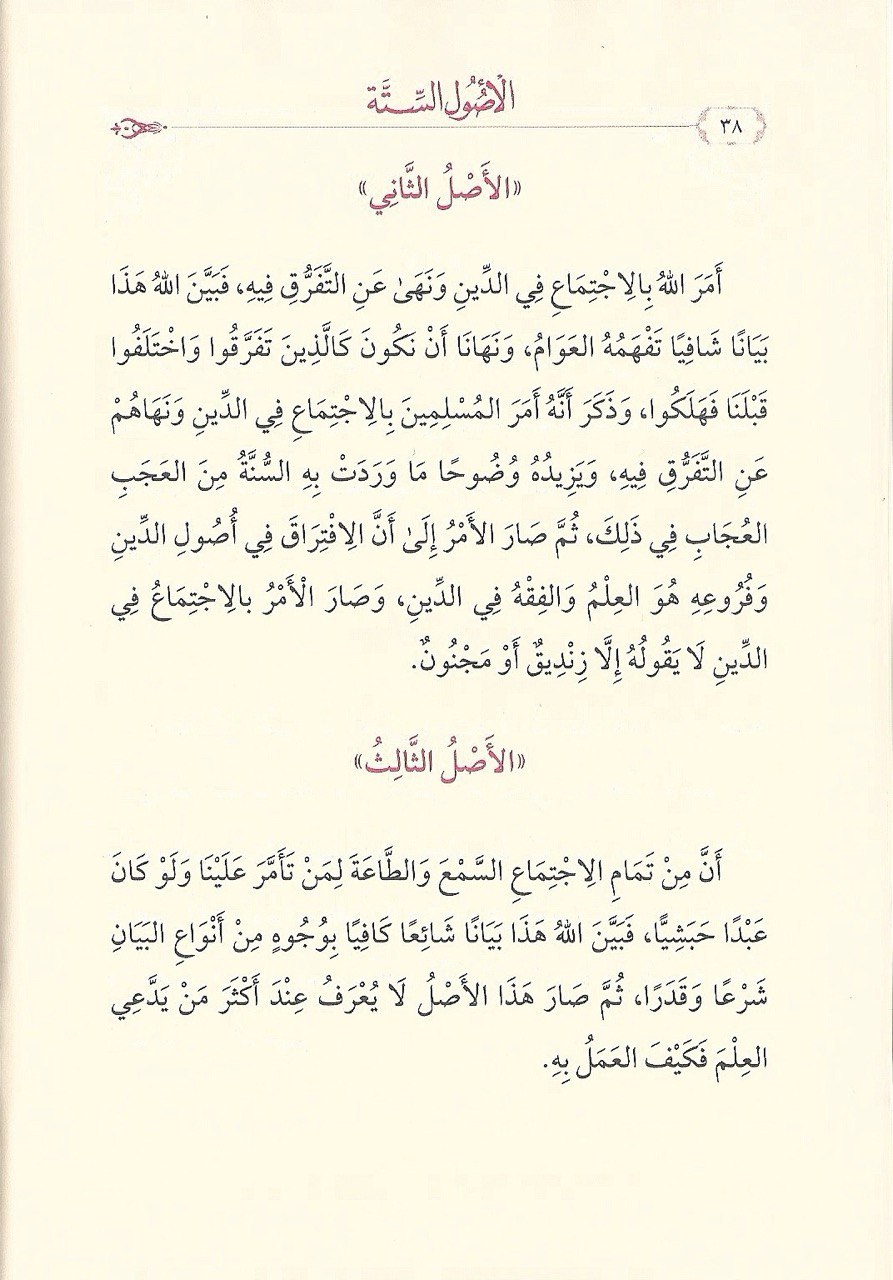 الأصول الستة
٣٨
«الأَصْلُ الثَّانِي»
أَمَرَ اللهُ بِالِاجْتِمَاعِ فِي الدِّينِ وَنَهَىٰ عَنِ التَّفَرُّقِ فِيهِ، فَبَيَّنَ اللهُ هَذَا
بَيَانًا شَافِيًا تَفْهَمُهُ العَوَامُ، وَنَهَانَا أَنْ نَكُونَ كَالَّذِينَ تَفَرَّقُوا وَاخْتَلَفُوا
قَبْلَنَا فَهَلَكُوا، وَذَكَرَ أَنَّهُ أَمَرَ المُسْلِمِينَ بِالِاجْتِمَاعِ فِي الدِّينِ وَنَهَاهُمْ
عَنِ التَّفَرُّقِ فِيهِ، وَيَزِيدُهُ وُضُوحًا مَا وَرَدَتْ بِهِ السُّنَّةُ مِنَ العَجَبِ
العُجَابِ فِي ذَلِكَ، ثُمَّ صَارَ الأَمْرُ إِلَىٰ أَنَّ الِافْتِرَاقَ فِي أُصُولِ الدِّينِ
وَفُرُوعِهِ هُوَ العِلْمُ وَالفِقْهُ فِي الدِّينِ، وَصَارَ الْأَمْرُ بالِاجْتِمَاعُ فِي
الدِّينِ لَا يَقُولُهُ إِلَّا زِنْدِيقٌ أَوْ مَجْنُونٌ.
«الأَصْلُ الثَّالِثُ»
أَنَّ مِنْ تَمَامِ الِاجْتِمَاعِ السَّمْعَ وَالطَّاعَةَ لِمَنْ تَأَمَّرَ عَلَيْنَا وَلَوْ كَانَ
عَبْدًا حَبَشِيًّا، فَبَيَّنَ اللهُ هَذَا بَيَانًا شَائِعًا كَافِيًا بِوُجُوهٍ مِنْ أَنْوَاعِ البَيَانِ
شَرْعًا وَقَدَرًا، ثُمَّ صَارَ هَذَا الأَصْلُ لَا يُعْرَفُ عِنْدَ أَكْثَرَ مَنْ يَدَّعِي
العِلْمَ فَكَيْفَ العَمَلُ بِهِ.